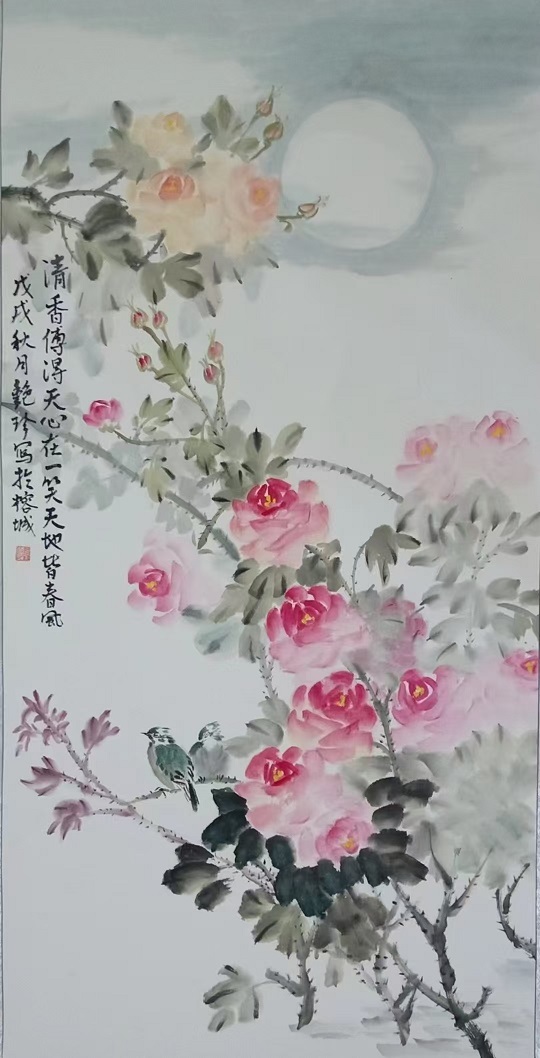 清香傳得天心在一笑天地皆春風
戊戌秋月艷珍寫於榕城